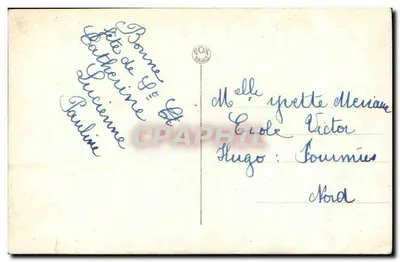 Bonne
fête de Ste
Catherine
Lucienne
Pauline
FOX
Melle Yvette
Ecole Victor
Hugo : Fourmies
Nord